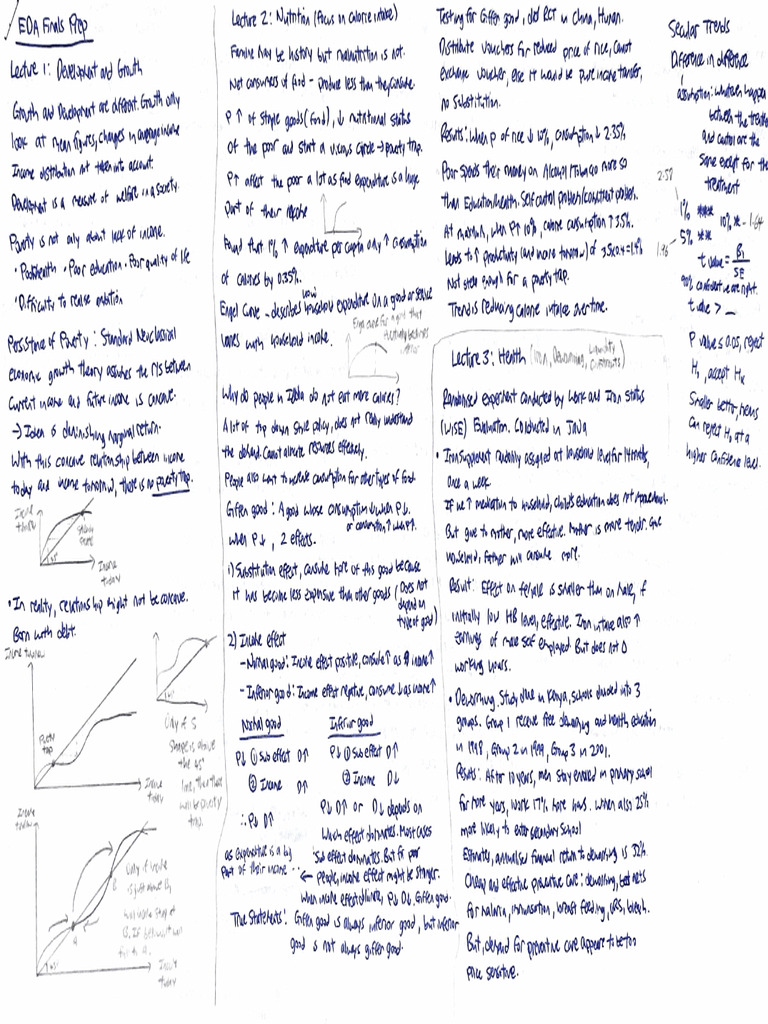 EDA Finals Prep
Lecture 1: Development and Growth
Growth and Development are different. Growth only
look at mean figures, changes in average income
Income distribution not taken into account.
Development is a measure of welfare in a society.
Poverty is not only about lack of income.
• Poor health • Poor education • Poor quality of life
• Difficulty to realise ambition
Persistence of Poverty: Standard Neoclassical
economic growth theory assumes the r/s between
current income and future income is concave.
→ Idea of diminishing marginal return.
With this concave relationship between income
today and income tomorrow, there is no poverty trap.
Income
tomorrow
Steady
state
45°
Income
today
• In reality, relationship might not be concave.
Born with debt.
Income tomorrow
Poverty
trap
Income
today
45°
Only if S
shape is above
the 45°
line, then there
will be poverty
trap.
Income
tomorrow
Only if income
is just above B,
B
A
45°
Income
today
Lecture 2: Nutrition (Focus on calorie intake)
Famine may be history but malnutrition is not.
Net consumers of food - produce less than they consume.
P ↑ of staple goods (food), ↓ nutritional status
of the poor and start a vicious circle → poverty trap.
P↑ affect the poor a lot as food expenditure is a large
part of their income
Found that 1% ↑ expenditure per capita only ↑ consumption
of calories by 0.35%.
Engel Curve - describes how household expenditure on a good or service
varies with household income.
Engel curve for good that
eventually becomes
inferior
Why do people in India do not eat more calories?
A lot of top down style policy, does not really understand
the demand. Cannot allocate resources effectively.
People also want to increase consumption for other types of food.
Giffen good: A good whose consumption ↓ when P↓.
or consumption ↑ when P↑.
When P↓, 2 effects.
1) Substitution effect, consume more of this good because
it has become less expensive than other goods (Does not
depend on
type of good)
2) Income effect
- Normal good: Income effect positive, consume ↑ as $ income ↑
- Inferior good: Income effect negative, consume ↓ as income ↑
Normal good
P↓ ① Sub effect D↑
② Income D↑
∴ P↓ D↑
Inferior good
P↓ ① Sub effect D↑
② Income D↓
P↓ D↑ or D↓ depends on
which effect dominates. Most cases
sub effect dominates. But for poor
people, income effect might be stronger.
When income effect dominates, P↓ D↓. Giffen good.
as expenditure is a big
part of their income
True Statements: Giffen good is always inferior good, but inferior
good is not always giffen good.
Testing for Giffen good, did RCT in China, Hunan.
Distribute vouchers for reduced price of rice, cannot
exchange voucher, else it would be pure income transfer,
no substitution.
Results: When P of rice ↓ 10%, consumption ↓ 2.35%.
Poor spends their money on Alcohol/Tobacco more so
than Education/Health. Self control problem/commitment problem.
when P↑ 10%, calorie consumption ↑ 3.5%.
Not steep enough for a poverty trap.
Trend is reducing calorie intake overtime.
Lecture 3: Health (Iron, Deworming, Liquidity
constraints)
Randomised experiment conducted by Work and Iron Status
(WISE) Evaluation. Conducted in Java
• Iron supplement randomly assigned at household level for 14 months,
once a week.
If we ↑ medication to household, child's education does not
But give to mother, more effective. Mother is more tender. Give
household, father will consume more.
Result: Effect on female is smaller than on male, if
initially low HB level, effective. Iron intake also ↑
earnings of male self employed. But does not Δ
working hours.
• Deworming. Study done in Kenya, schools divided into 3
groups. Group 1 receive free deworming and health education
in 1998, Group 2 in 1999, Group 3 in 2001.
Results: After 10 years, men stay enrolled in primary school
for more years, work 17% more hours. Women also 25%
more likely to enter secondary school
Estimates, annualised financial return to deworming is 32%.
Cheap and effective preventive care: deworming, bed nets
for malaria, immunisation, breast feeding, ORS, bleach.
But, demand for preventive care appears to be too
price sensitive.
Secular Trends
Difference in difference
assumption: whatever happen
between the treatment
and control are the
same except for the
treatment
2.58
1% *** 10% * - 1.64
1.96 5% **
t value = B₁
SE
90% confident we are right.
t value > _
P value ≤ 0.05, reject
H₀, accept
Smaller better, means
can reject H₀ at a
higher confidence level.